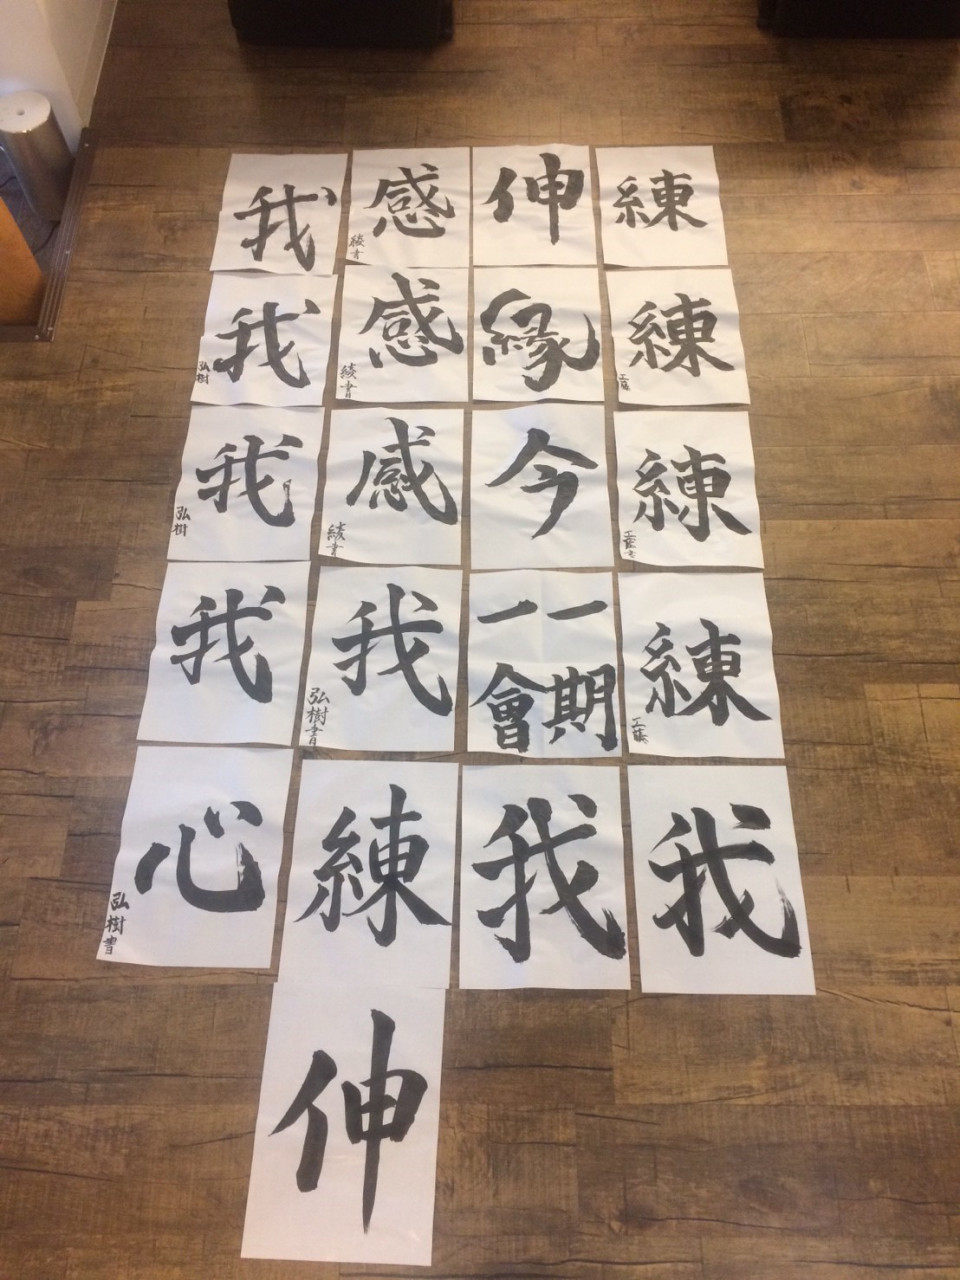 我
感
綾書
伸
練
我
弘樹
感
綾書
縁
練
工藤
我
弘樹
感
綾書
今
練
工藤書
我
我
弘樹書
一期
一會
練
工藤
心
弘樹書
練
我
我
伸